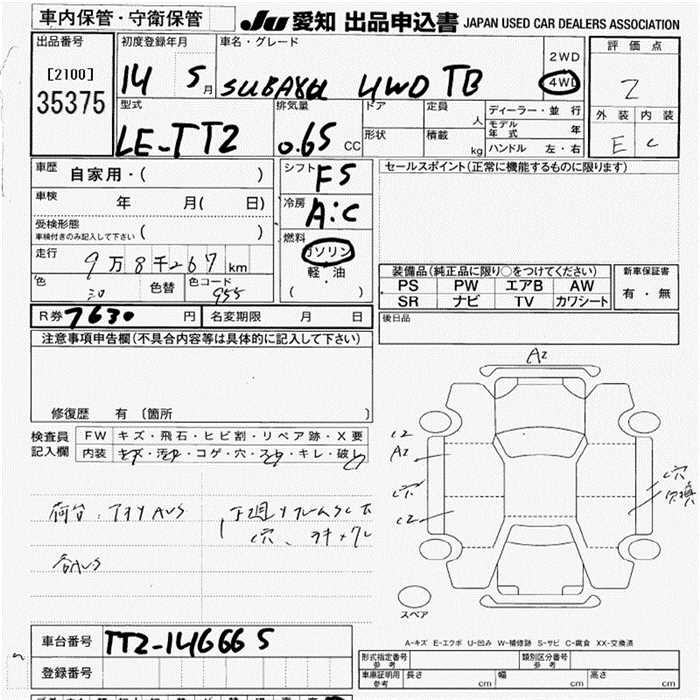 車内保管・守衛保管
JU 愛知 出品申込書 JAPAN USED CAR DEALERS ASSOCIATION
出品番号
[2100]
35375
初度登録年月
14 5月
車名・グレード
SUBARU 4WD TB
2WD
4WD
評価点
2
外装 内装
E C
型式
LE-TT2
排気量
0.65 CC
ドア
形状
定員 人
積載 kg
ディーラー・並行
モデル年式 年
ハンドル 左・右
車歴 自家用・( )
車検 年 月( 日)
受検形態
車検付きのみ記入して下さい ( )
走行 9万8千267km
色 色替 色コード 955
シフト F5
冷房 A:C
燃料 ガソリン
軽・油
( )
セールスポイント(正常に機能するものに限ります)
装備品(純正品に限り○をつけてください)
PS PW エアB AW
SR ナビ TV カワシート
新車保証書
有・無
R券 7630円 名変期限 月 日
後日品
注意事項申告欄(不具合内容等は具体的に記入して下さい)
修復歴 有 〔箇所 〕
検査員記入欄
FW キズ・飛石・ヒビ割・リペア跡・X要
内装 キズ・汚れ・コゲ・穴・スレ・キレ・破レ
A2
C2
A2
穴
C2
穴
スペア
A-キズ E-エクボ U-凹み W-補修跡 S-サビ C-腐食 XX-交換済
車台番号 TT2-146665
登録番号
形式指定番号 参考
類別区分番号 参考
車庫証明用 参考 長さ cm 幅 cm 高さ cm